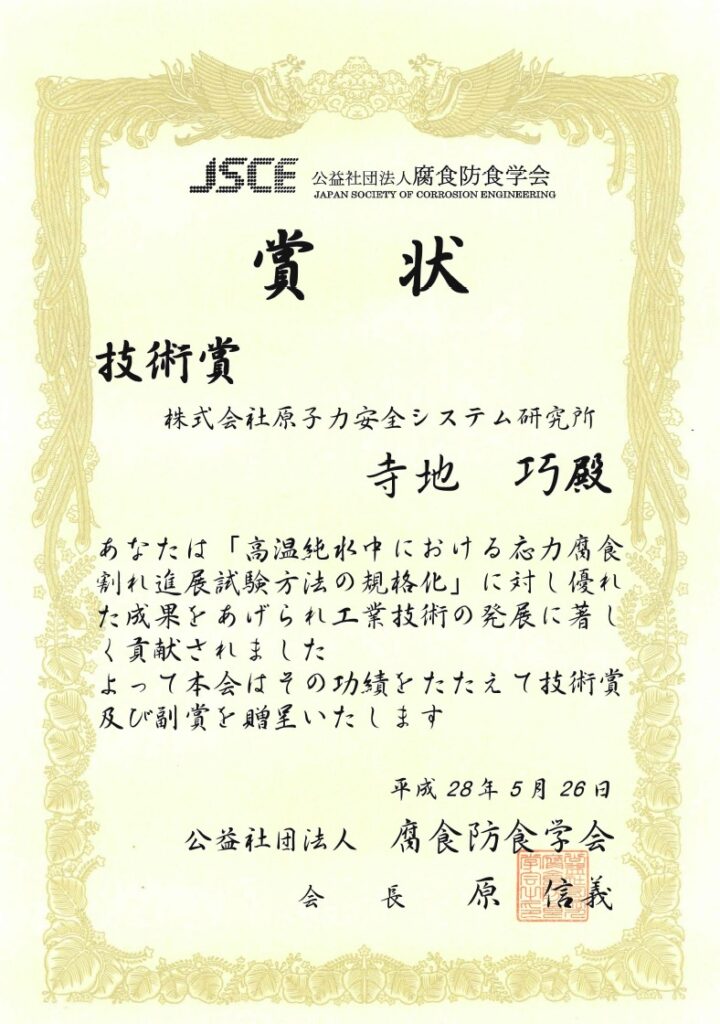 JSCE 公益社団法人腐食防食学会
JAPAN SOCIETY OF CORROSION ENGINEERING
賞 状
技術賞
株式会社原子力安全システム研究所
寺地 巧殿
あなたは「高温純水中における応力腐食
割れ進展試験方法の規格化」に対し優れ
た成果をあげられ工業技術の発展に著し
く貢献されました
よって本会はその功績をたたえて技術賞
及び副賞を贈呈いたします
平成28年5月26日
公益社団法人 腐食防食学会
会 長 原 信義